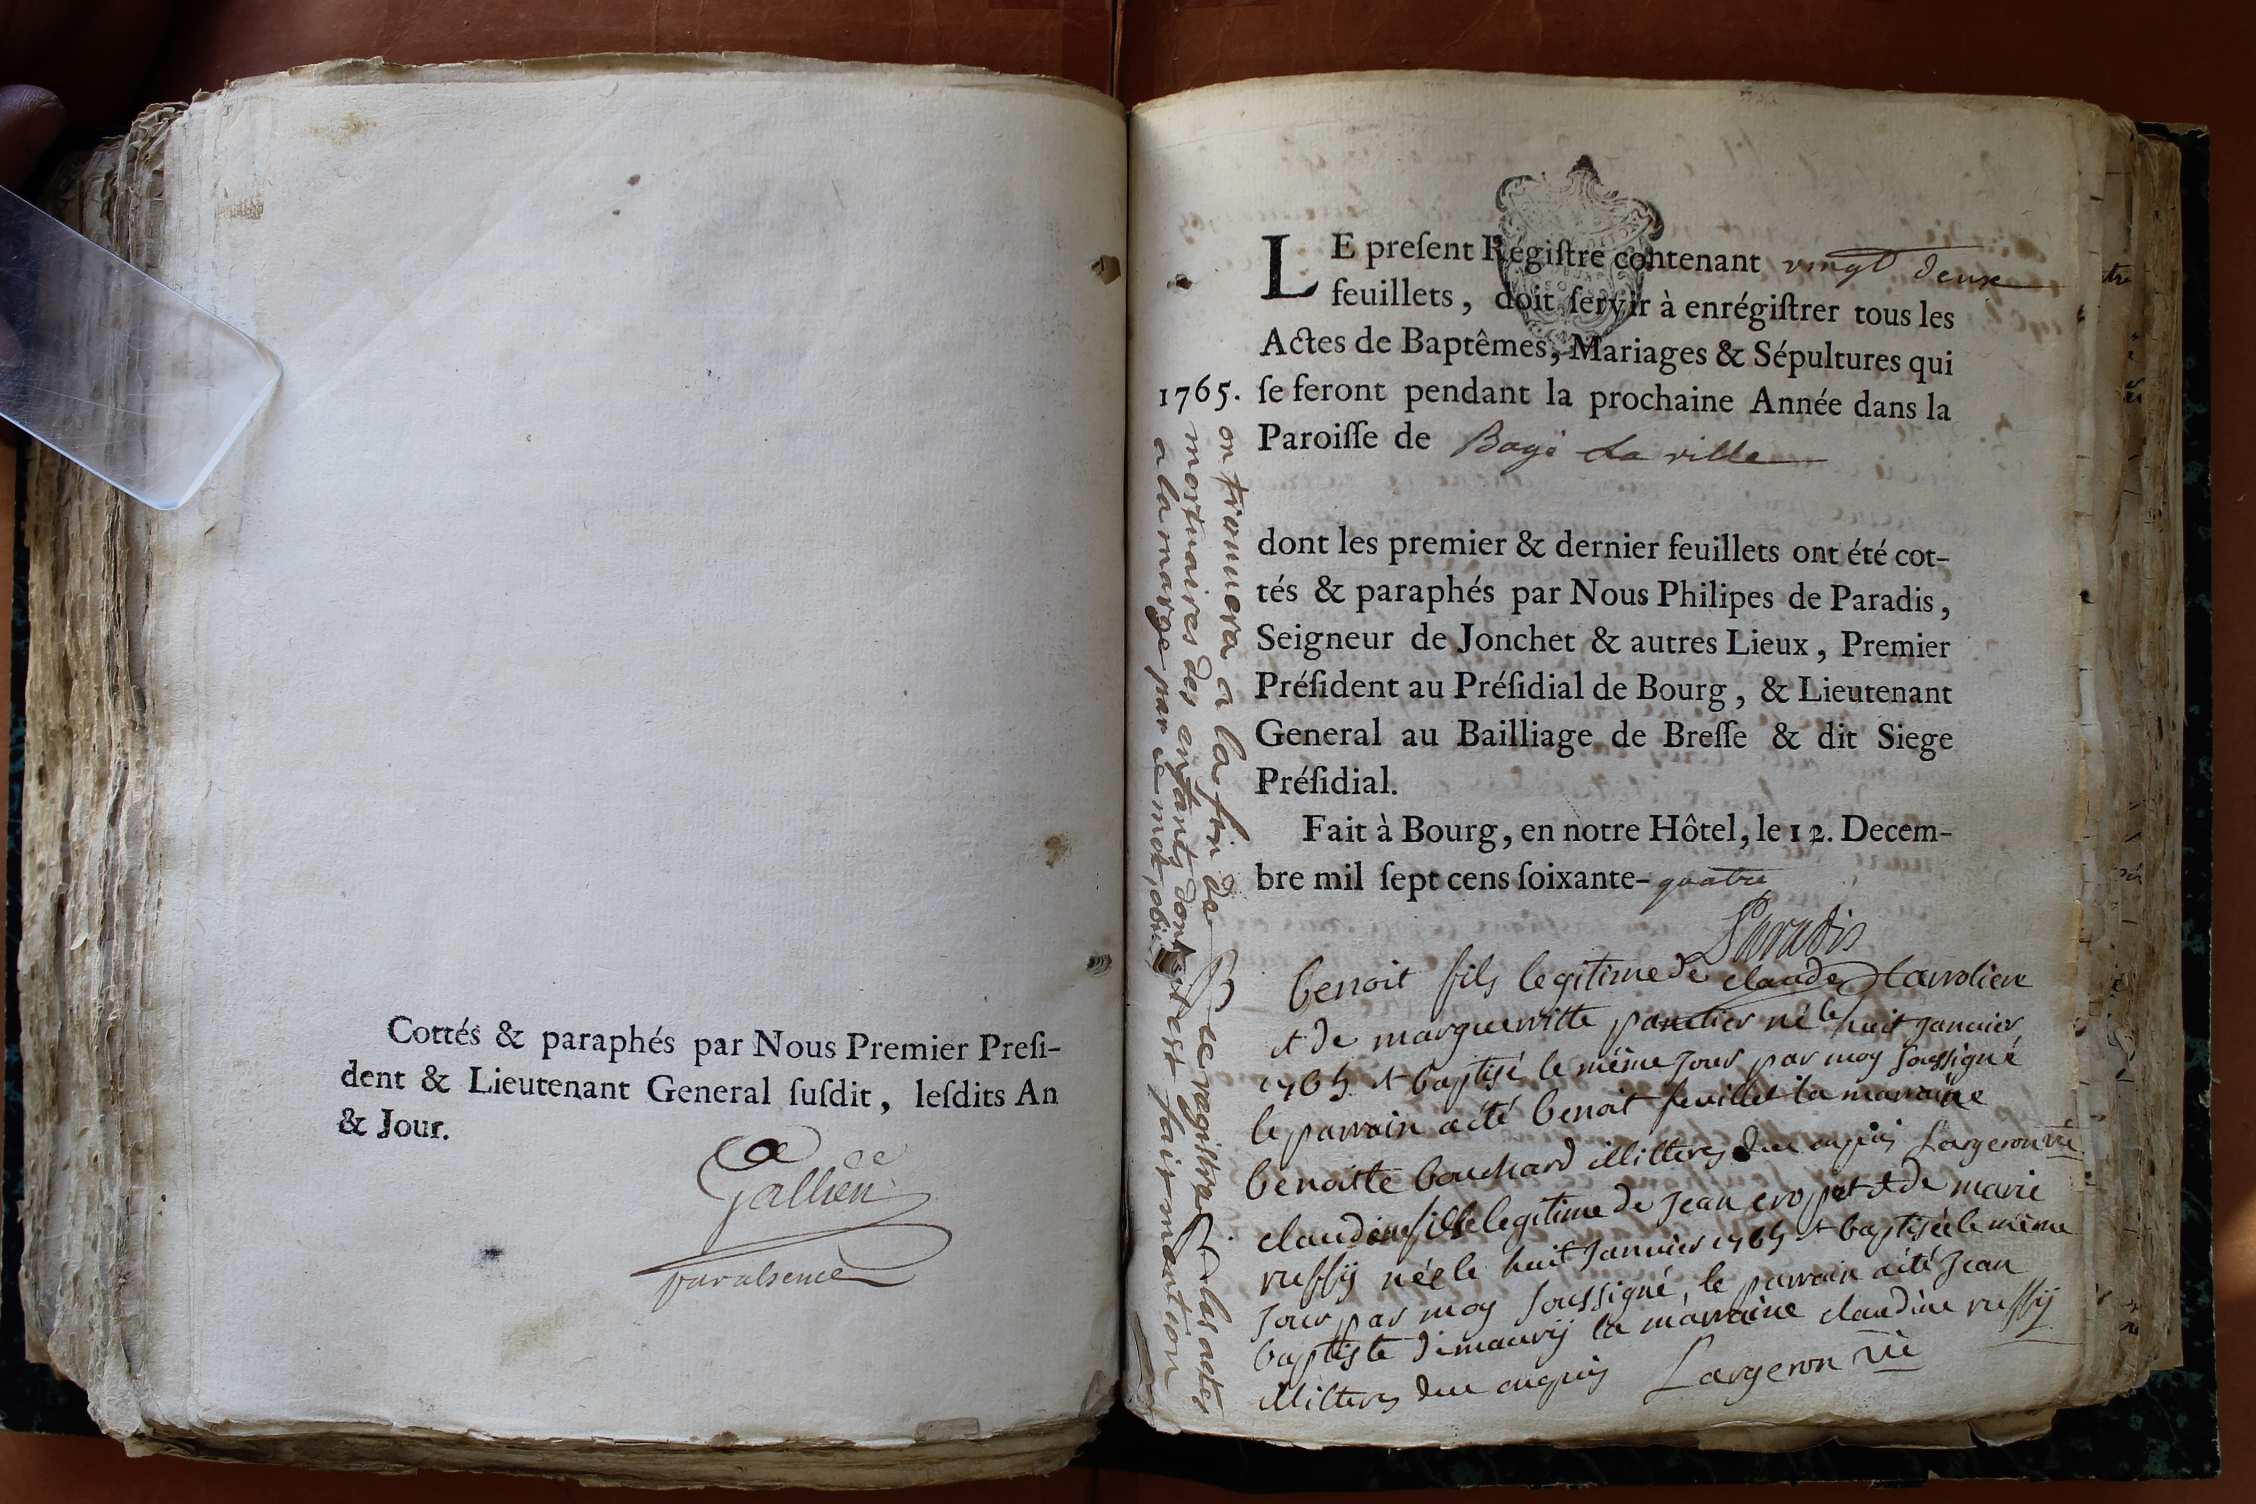 Cottés & paraphés par Nous Premier Presi-
dent & Lieutenant General susdit, lesdits An
& Jour.
Gallien
par absence
LE present Régistre contenant vingt deux
feuillets, doit servir à enrégistrer tous les
Actes de Baptêmes, Mariages & Sépultures qui
1765. se feront pendant la prochaine Année dans la
Paroisse de Bagé La ville
dont les premier & dernier feuillets ont été cot-
tés & paraphés par Nous Philipes de Paradis,
Seigneur de Jonchet & autres Lieux, Premier
Président au Présidial de Bourg, & Lieutenant
General au Bailliage de Bresse & dit Siege
Présidial.
Fait à Bourg, en notre Hôtel, le 12. Decem-
bre mil sept cens soixante-quatre
Paradis
on trouvera a la fin de ce registre les actes
mortuaires des enfants dont est fait mention
a la marge par ce mot, obiit
B benoit fils legitime de claude
et de margueritte né le huit janvier
1765 et baptisé le même jour par moy soussigné
le parrain a été benoit feuillet la marraine
benoitte bouchard illitterés due enquis Largeron vic
claudine fille legitime de jean cropet et de marie
ruffy née le huit janvier 1765 et baptisée le même
jour par moy soussigné, le parrain a été jean
baptiste dimaury la marraine claudine ruffy
illitterés due enquis Largeron vic